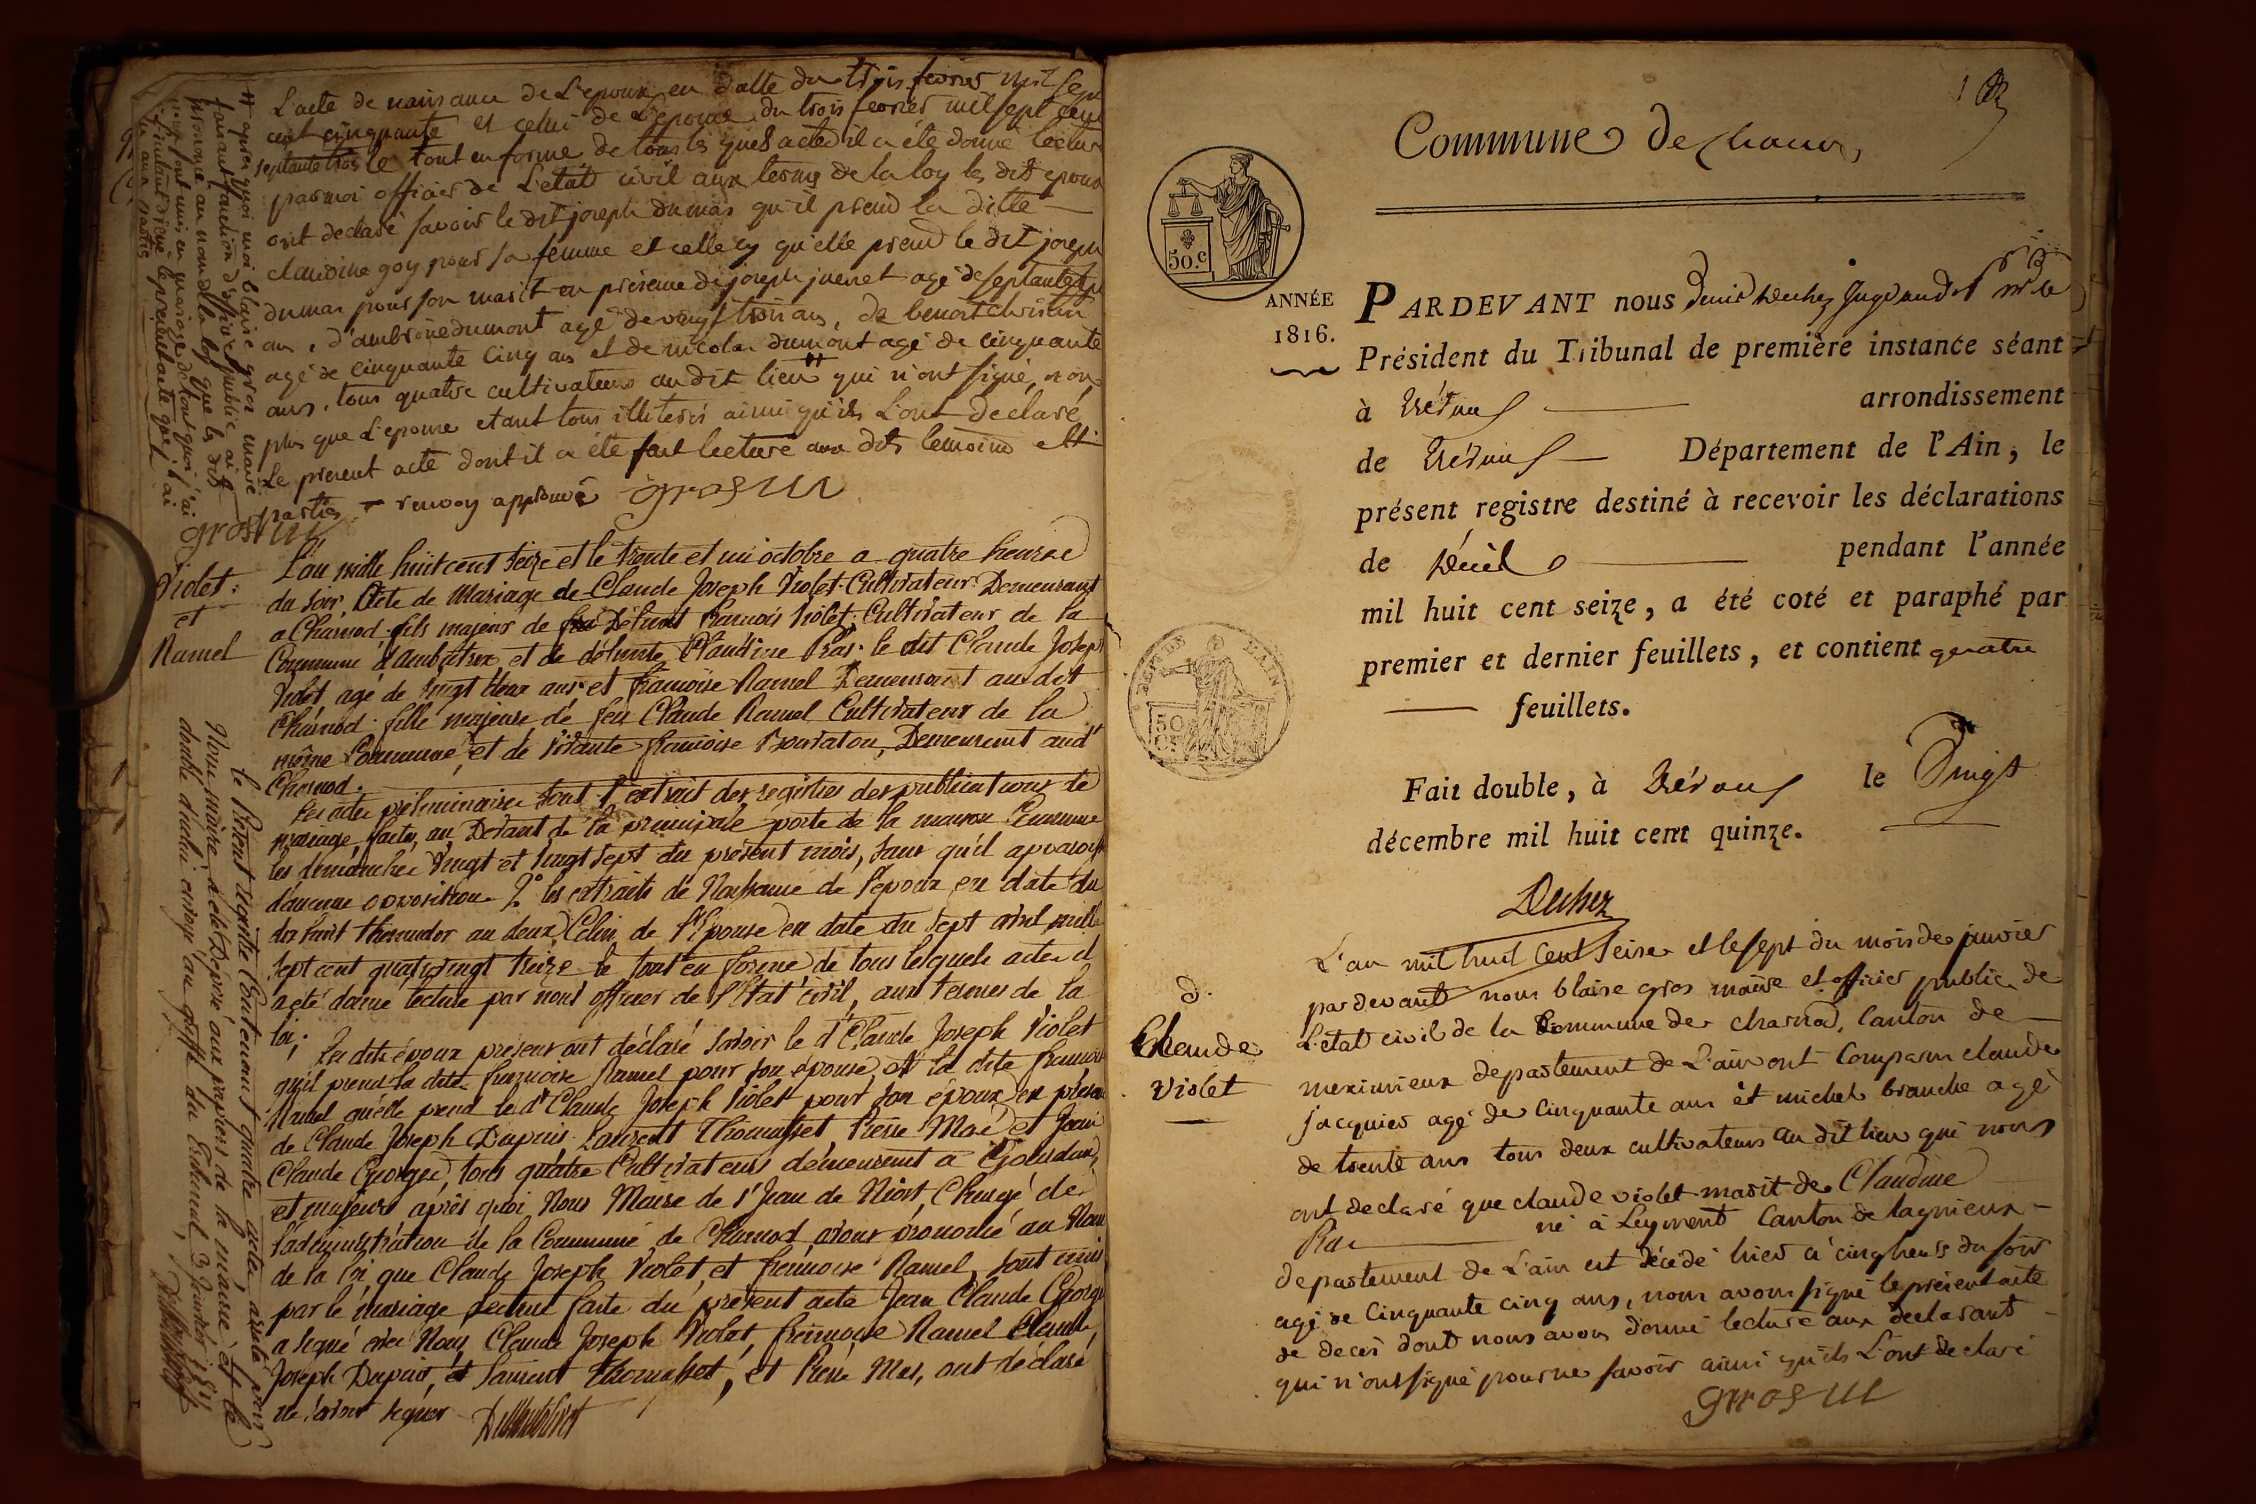 L'acte de naissance de L'epoux en datte du trois fevrier mil sept
cent cinquante et celui de L'epouse du trois fevrier mil sept cent
septante trois le tout en forme de tous les quels actes il a été donné lecture
par moi officier de L'etat civil aux termes de la loy les dits epoux
ont declaré savoir le dit joseph dumas qu'il prend la ditte
claudine goy pour sa femme et celle cy qu'elle prend le dit joseph
dumas pour son marit en présence de joseph juenet agé de septante
ans, d'ambroise dumont agé de vingt trois ans, de benoit
agé de cinquante cinq ans et de nicolas dumont agé de cinquante
ans, tous quatre cultivateurs au dit lieu qui n'ont signé, non
plus que L'epouse etant tous illiterés ainsi qu'ils L'ont declaré
Le present acte dont il a été fait lecture aux dits temoins et
parties renvoy approuvé gros
après quoi moi blaise gros maire
faisant fonction d'officier public ai
prononcé au nom de la loy que les dits
sont unis en mariage
gros
Violet
et
Ramel
L'an mille huit cent seize et le trente et un octobre a quatre heures
du soir, Acte de Mariage de Claude Joseph Violet Cultivateur Demeurant
a Charnod fils majeur de Défunt francois Violet, Cultivateur de la
Commune d'ambutrix et de défunte Claudine Pras. le dit Claude Joseph
Violet agé de vingt deux ans et francoise Ramel Demeurant audit
Charnod fille majeure de feu Claude Ramel Cultivateur de la
même Commune, et de vivante francoise Demeurant aud
Charnod.
Les actes préliminaires sont l'extrait des registres des publications de
mariage, faites au Devant de la principale porte de la maison Commune
les dimanches vingt et vingt sept du présent mois, sans qu'il apparoisse
d'aucune opposition 2° les extraits de Naissance de l'époux en date du
thermidor an deux, Celui de l'Epouse en date du sept avril mille
sept cent quatrevingt treize le tout en forme de tous lesquels actes il
a été donné lecture par nous officier de l'Etat civil, aux termes de la
loi;
Les dits époux présent ont déclaré savoir le dt Claude Joseph Violet
qu'il prend la dite francoise Ramel pour son épouse, et la dite francoise
Ramel qu'elle prend le dt Claude Joseph Violet pour son époux en présence
de Claude Joseph Dupuis Laurent Thomasset, Pierre Mas et Jean
Claude George, tous quatre Cultivateurs demeurant a
et majeurs après quoi Nous Maire de St Jean de Niost, Chargé de
l'administration de la Commune de Charnod avons prononcé au Nom
de la loi que Claude Joseph Violet et francoise Ramel, sont unis
par le mariage lecture faite du present acte Jean Claude George
a signé avec Nous, Claude Joseph Violet, francoise Ramel Claude
Joseph Dupuis, et Laurent Thomasset, et Pierre Mas, ont déclaré
ne savoir signer
le Présent registre Contenant quatre actes arrêté par
Nous maire, a été Déposé aux papiers de la mairie et le
double d'icelui envoyé au greffe du Tribunal
Commune de
50.c
ANNÉE
1816.
PARDEVANT nous Denis Duchez Juge
Président du Tribunal de première instance séant
à Trévoux arrondissement
de Trévoux Département de l'Ain, le
présent registre destiné à recevoir les déclarations
de Décès pendant l'année
mil huit cent seize, a été coté et paraphé par
premier et dernier feuillets, et contient quatre
feuillets.
Fait double, à Trévoux le Vingt
décembre mil huit cent quinze.
Duhez
d.
Claude
Violet
L'an mil huit cent seise et le sept du mois de janvier
par devant nous blaise gros maire et officier public de
L'etat civil de la Commune de charnod, Canton de
meximieux departement de L'ain ont Comparu claude
jacquier agé de cinquante ans et michel branche agé
de trente ans tous deux cultivateurs au dit lieu qui nous
ont declaré que claude violet marit de Claudine
Ras né à Leyment Canton de lagnieux
departement de L'ain est décédé hier à cinq heures du soir
agé de Cinquante cinq ans, nous avons signé le présent acte
de deces dont nous avons donné lecture aux declarants
qui n'ont signé pour ne savoir ainsi qu'ils L'ont declaré
gros